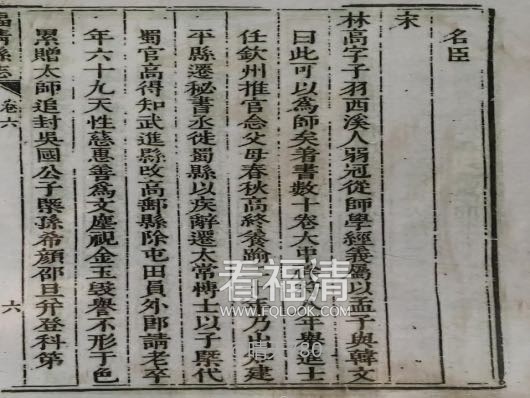 名臣
宋
林高字子羽西溪人弱冠從師學經義屬以孟子與韓文
曰此可以為師矣著書數十卷大中 年舉進士
任欽州推官念父母春秋高終養踰 乃出 建
平縣遷秘書丞徙蜀縣以疾辭遷太常博士以子槩代
蜀官高得知武進縣改高郵縣除屯田員外郎請老卒
年六十九天性慈惠善為文塵視金玉毀譽不形于色
累贈太師追封吳國公子槩孫希顏邵旦并登科第
福清縣志
卷六
六
看福清
WWW.FQLOOK.COM
晴 30